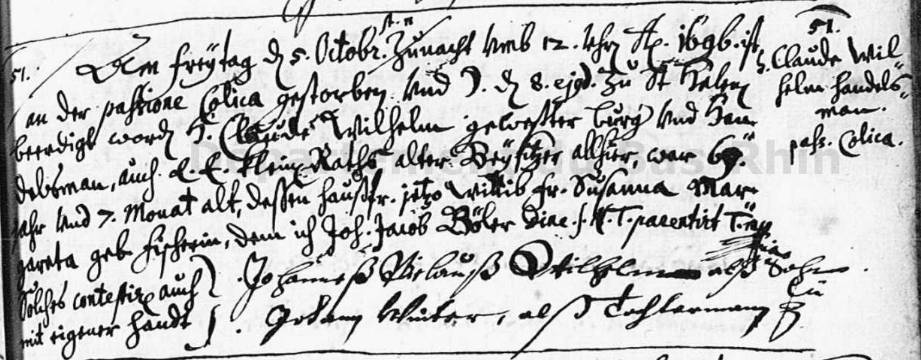 51.
Den freÿtag d 5. Octobr. st. n. Zunacht umb 12. Uhr A. 1696. ist
an der passione Colica gestorben. Und d. 8. ejsd. Zu St Helen
beerdigt word H. Claude Wilhelm geweßter burg. Und Han-
delsman, auch E. E. Klein Raths alter Beÿsitzer allhier, war 69.
Jahr Und 7. Monat alt, deßen haußfr. jetzo Wittib fr. Susanna Mar-
gareta geb. fischerin, dem ich Joh. Jacob
Solches contestir auch
mit eigener handt
Johanneß Niclauß Wilhelm alß Sohn
Johann Winter, alß Tochterman
51.
H. Claude Wil-
helm handels-
man.
pass. Colica.
Bas-Rhin